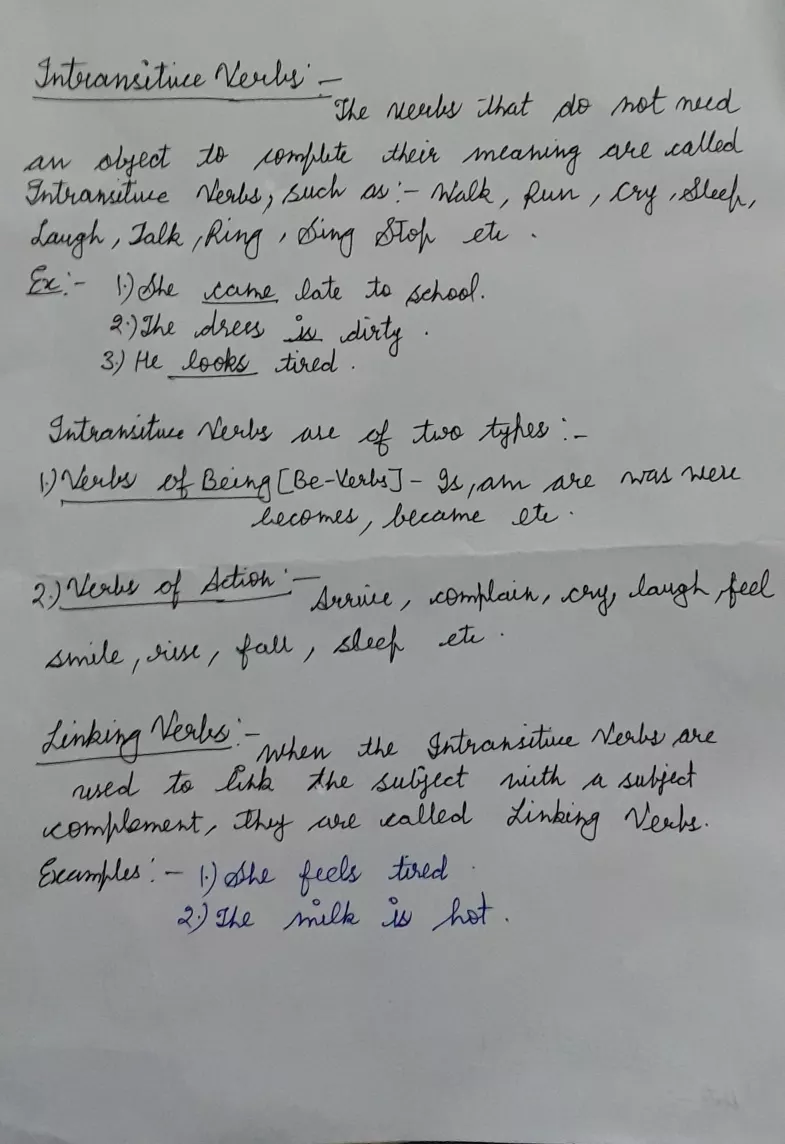 Intransitive Verbs:-
The verbs that do not need
an object to complete their meaning are called
Intransitive Verbs, such as:- Walk, Run, Cry, Sleep,
Laugh, Talk, Ring, Sing Stop etc.
Ex:- 1.) She came late to school.
2.) The drees is dirty.
3.) He looks tired.
Intransitive Verbs are of two types:-
1.) Verbs of Being [Be-Verbs] - Is, am are was were
becomes, became etc.
2.) Verbs of Action:- Arrive, complain, cry, laugh, feel
smile, rise, fall, sleep etc.
Linking Verbs:- When the Intransitive Verbs are
used to link the subject with a subject
complement, they are called Linking Verbs.
Examples:- 1.) She feels tired.
2.) The milk is hot.